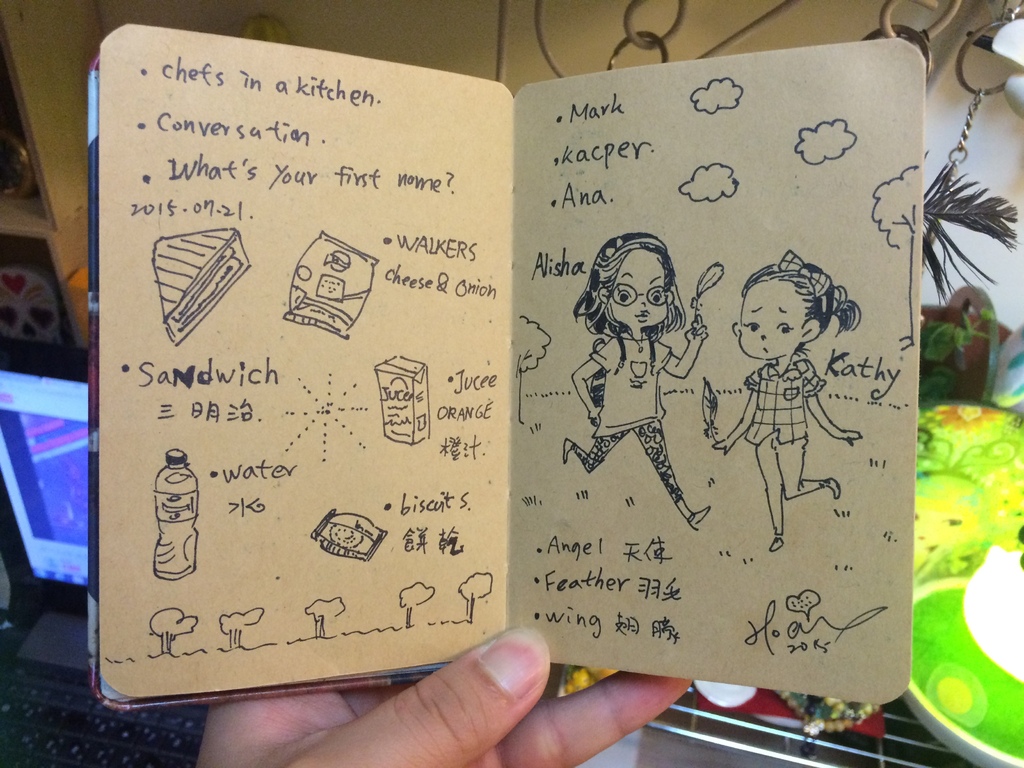 • Chefs in a kitchen.
• Conversation.
• What's your first name?
2015.07.21.
• WALKERS
Cheese & Onion
• Sandwich
三明治.
Jucee
• Jucee
ORANGE
橙汁.
• water
水
• biscuits.
餅乾
• Mark
• Kacper.
• Ana.
Alisha
Kathy
• Angel 天使
• Feather 羽毛
• wing 翅膀
2015